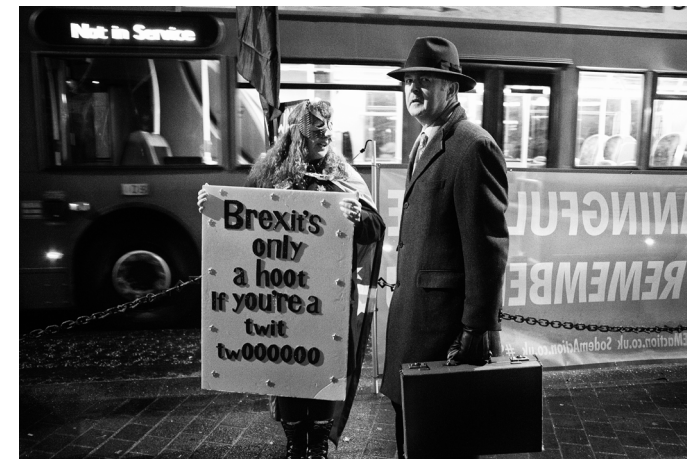 Not in Service
Brexit's
only
a hoot
If you're a
twit
twOOOOOO
NINGFUL
REMEMBE
SodemAction.co.uk